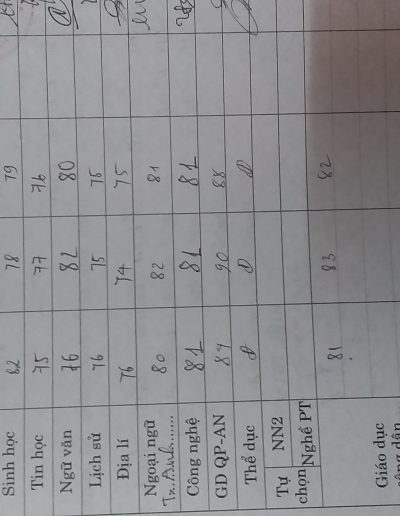 Sinh học 82 78 79
Tin học 75 77 76
Ngữ văn 76 82 80
Lịch sử 76 75 75
Địa lí 76 74 75
Ngoại ngữ 80 82 81
T. Anh........
Công nghệ 81 81 81
GD QP-AN 89 90
Thể dục Đ Đ Đ
Tự chọn
NN2
Nghề PT
81 83 82
Giáo dục
công dân